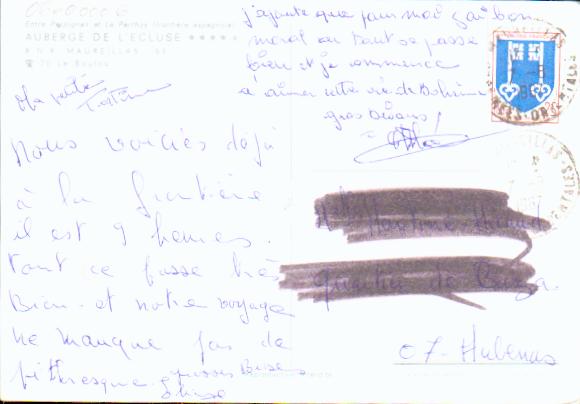 Entre Perpignan et Le Perthus (frontière espagnole)
AUBERGE DE L'ECLUSE ★★★★
R.N. 9 MAUREILLAS 66
Le Boulou
Ma petite
Nous voiciés déjà
à la frontière
il est 9 heures.
Tout ce passe très
Bien. et notre voyage
ne manque pas de
pittoresque. grosses Bises
j'ajoute que pour moi j'ai bon
moral où tout se passe
bien et je commence
à aimer cette vie de Bohème
gros
MAUREILLAS
PYRENEES-ORIENTALES
Quartier de
07. Aubenas